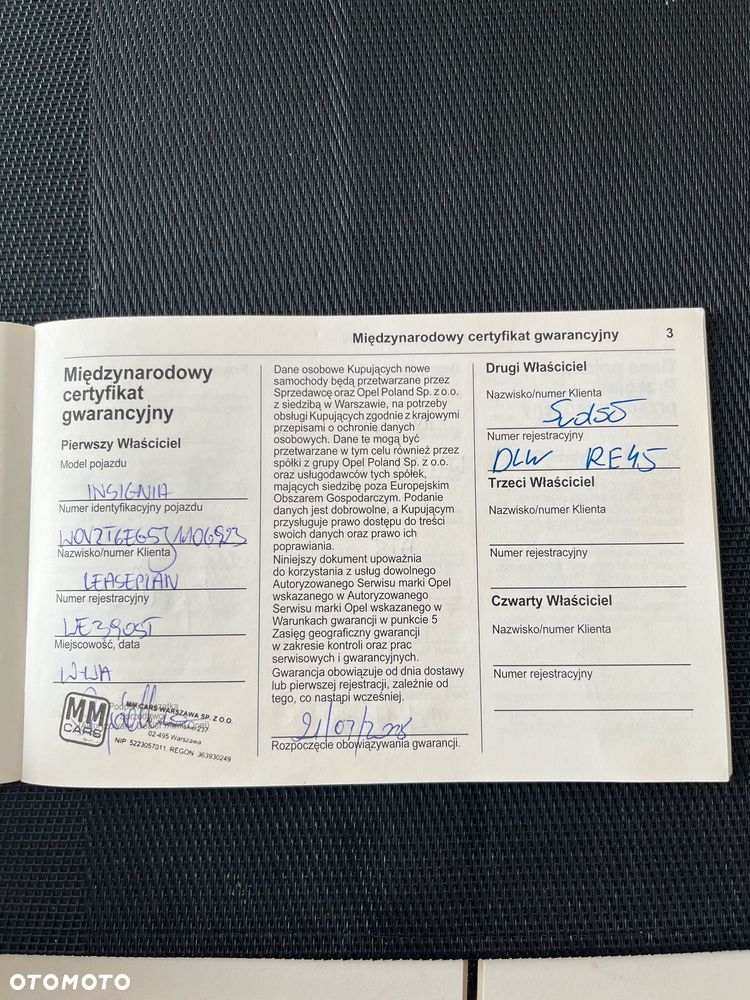 Międzynarodowy certyfikat gwarancyjny 3
Międzynarodowy
certyfikat
gwarancyjny
Pierwszy Właściciel
Model pojazdu
INSIGNIA
Numer identyfikacyjny pojazdu
Nazwisko/numer Klienta
LEASEPLAN
Numer rejestracyjny
WE390ST
Miejscowość, data
W-WA
MM
CARS
MM CARS WARSZAWA SP. Z O.O.
02-495 Warszawa
NIP 5223057011, REGON 363930249
Dane osobowe Kupujących nowe
samochody będą przetwarzane przez
Sprzedawcę oraz Opel Poland Sp. z o.o.
z siedzibą w Warszawie, na potrzeby
obsługi Kupujących zgodnie z krajowymi
przepisami o ochronie danych
osobowych. Dane te mogą być
przetwarzane w tym celu również przez
spółki z grupy Opel Poland Sp. z o.o.
oraz usługodawców tych spółek,
mających siedzibę poza Europejskim
Obszarem Gospodarczym. Podanie
danych jest dobrowolne, a Kupującym
przysługuje prawo dostępu do treści
swoich danych oraz prawo ich
poprawiania.
Niniejszy dokument upoważnia
do korzystania z usług dowolnego
Autoryzowanego Serwisu marki Opel
wskazanego w Autoryzowanego
Serwisu marki Opel wskazanego w
Warunkach gwarancji w punkcie 5
Zasięg geograficzny gwarancji
w zakresie kontroli oraz prac
serwisowych i gwarancyjnych.
Gwarancja obowiązuje od dnia dostawy
lub pierwszej rejestracji, zależnie od
tego, co nastąpi wcześniej.
Rozpoczęcie obowiązywania gwarancji.
Drugi Właściciel
Nazwisko/numer Klienta
Numer rejestracyjny
DLW RE45
Trzeci Właściciel
Nazwisko/numer Klienta
Numer rejestracyjny
Czwarty Właściciel
Nazwisko/numer Klienta
Numer rejestracyjny
OTOMOTO